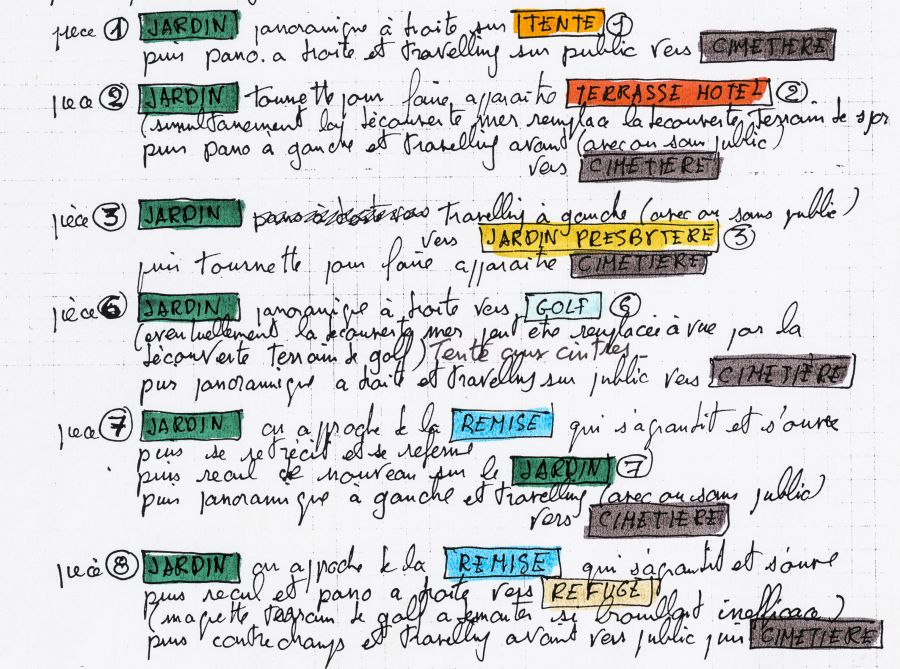 pièce ① JARDIN panoramique à droite sur TENTE ①
puis pano. a droite et travelling sur public vers CIMETIERE
pièce ② JARDIN tournette pour faire apparaitre TERRASSE HOTEL ②
(simultanement la découverte mer remplace la decouverte terrain de
puis pano a gauche et travelling avant (avec ou sans public)
vers CIMETIERE
pièce ③ JARDIN travelling à gauche (avec ou sans public)
vers JARDIN PRESBYTERE ③
puis tournette pour faire apparaitre CIMETIERE
pièce ⑥ JARDIN panoramique à droite vers GOLF ⑥
(eventuellement la decouverte mer peut etre remplacée à vue par la
découverte terrain de golf) Tente aux cintres
puis panoramique a droite et travelling sur public vers CIMETIERE
pièce ⑦ JARDIN on approche de la REMISE qui s'agrandit et s'ouvre
puis se retrécit et se referme
puis recul de nouveau sur le JARDIN ⑦
puis panoramique a gauche et travelling (avec ou sans public)
vers CIMETIERE
pièce ⑧ JARDIN on approche de la REMISE qui s'agrandit et s'ouvre
puis recul et pano a droite vers REFUGE
(maquette terrain de golf a remonter si brouillard inefficace)
puis contrechamps et travelling avant vers public puis CIMETIERE